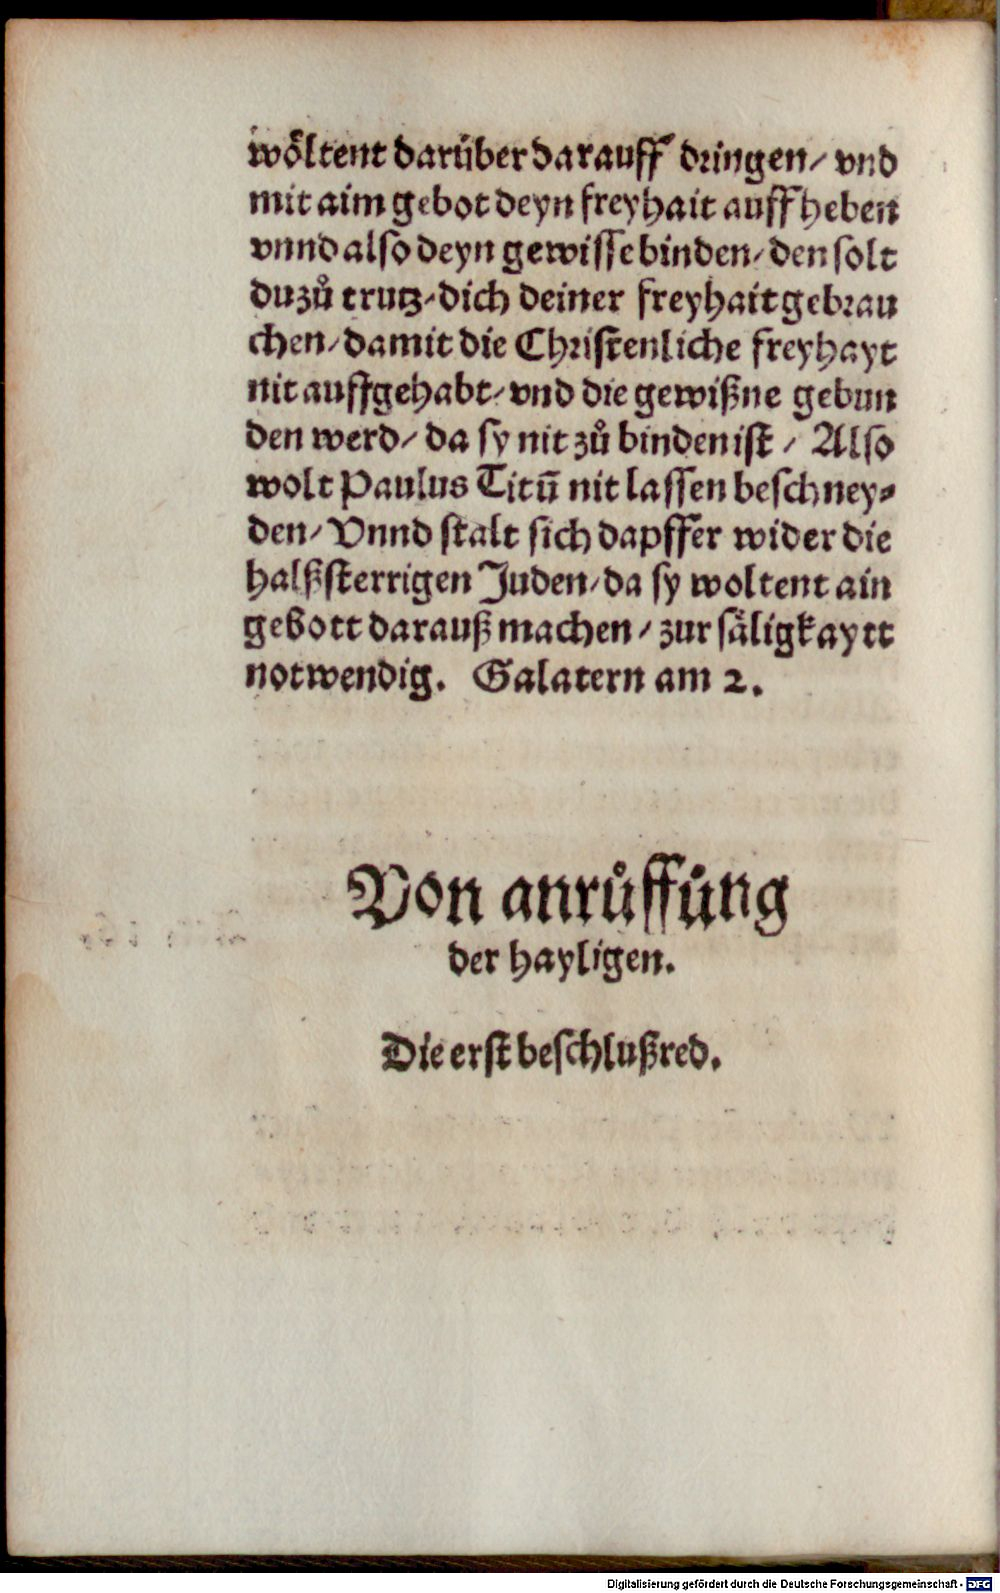 wöltent darüber darauff dringen/ vnd
mit aim gebot deyn freyhait auffheben
vnnd also deyn gewisse binden/ den solt
du zů trutz/ dich deiner freyhait gebrau
chen/ damit die Christenliche freyhayt
nit auffgehabt/ vnd die gewißne gebun
den werd/ da sy nit zů binden ist/ Also
wolt Paulus Titū nit lassen beschney⸗
den/ Vnnd stalt sich dapffer wider die
halßsterrigen Juden/ da sy woltent ain
gebott darauß machen/ zur säligkaytt
notwendig. Galatern am 2.
Von anrůffůng
der hayligen.
Die erst beschlußred.
Digitalisierung gefördert durch die Deutsche Forschungsgemeinschaft - DFG